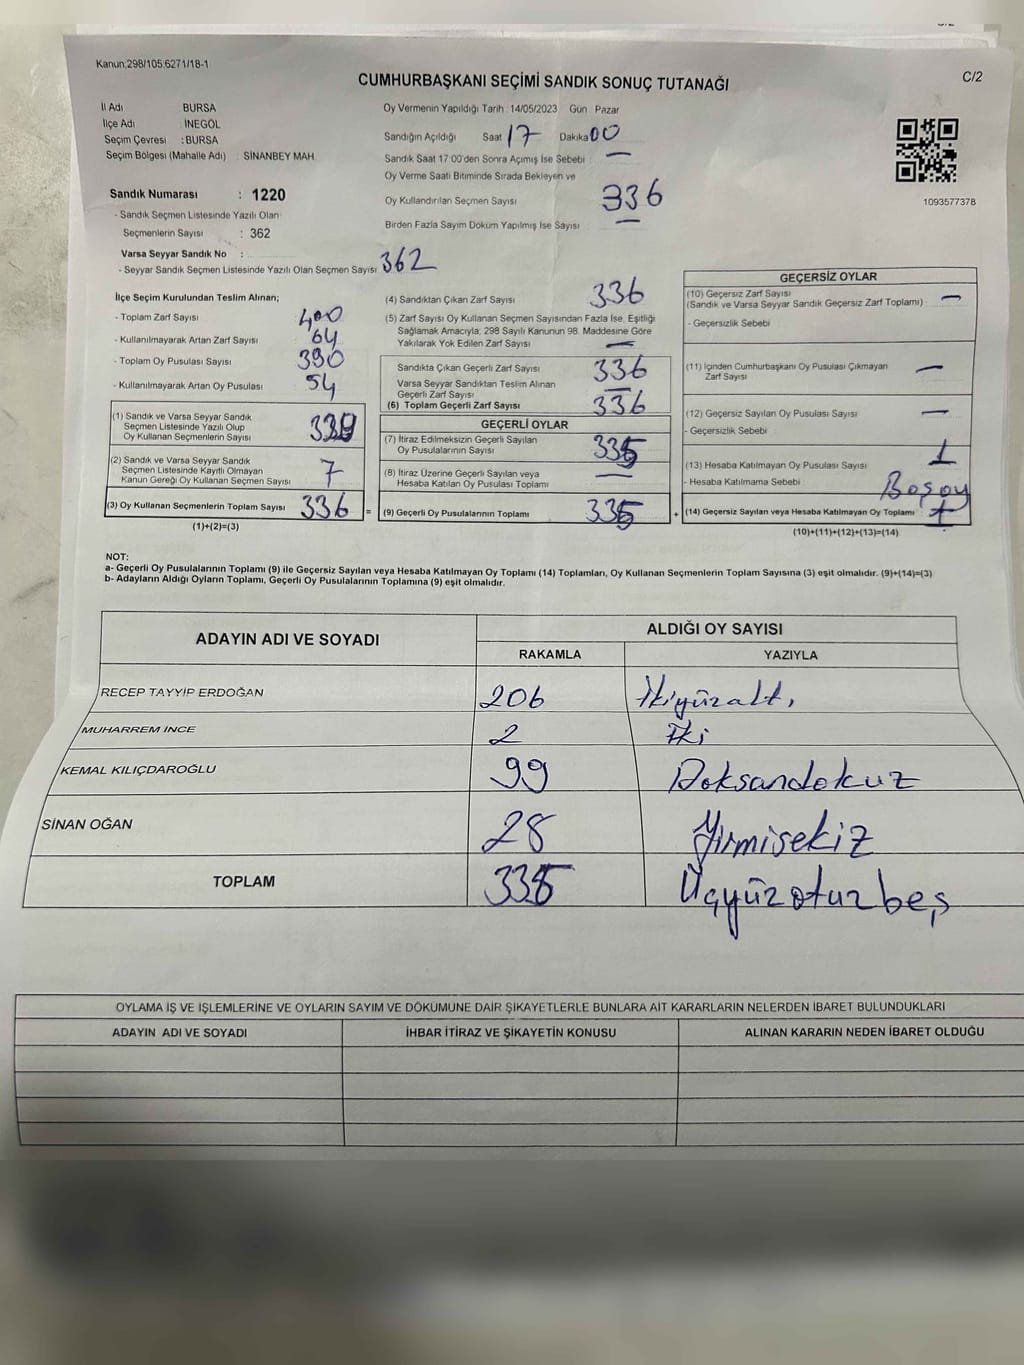 Kanun,298/105,6271/18-1
C/2
CUMHURBAŞKANI SEÇİMİ SANDIK SONUÇ TUTANAĞI
İl Adı BURSA
İlçe Adı : İNEGÖL
Seçim Çevresi : BURSA
Seçim Bölgesi (Mahalle Adı) : SİNANBEY MAH.
Sandık Numarası : 1220
- Sandık Seçmen Listesinde Yazılı Olan
Seçmenlerin Sayısı : 362
Varsa Seyyar Sandık No :
- Seyyar Sandık Seçmen Listesinde Yazılı Olan Seçmen Sayısı 362
Oy Vermenin Yapıldığı Tarih : 14/05/2023 Gün Pazar
Sandığın Açıldığı Saat 17 Dakika 00
Sandık Saat 17:00'den Sonra Açımış İse Sebebi : —
Oy Verme Saati Bitiminde Sırada Bekleyen ve
Oy Kullandırılan Seçmen Sayısı 336
Birden Fazla Sayım Döküm Yapılmış İse Sayısı —
1093577378
İlçe Seçim Kurulundan Teslim Alınan;
- Toplam Zarf Sayısı 400
- Kullanılmayarak Artan Zarf Sayısı 64
- Toplam Oy Pusulası Sayısı 390
- Kullanılmayarak Artan Oy Pusulası 54
(1) Sandık ve Varsa Seyyar Sandık
Seçmen Listesinde Yazılı Olup
Oy Kullanan Seçmenlerin Sayısı
(2) Sandık ve Varsa Seyyar Sandık
Seçmen Listesinde Kayıtlı Olmayan
Kanun Gereği Oy Kullanan Seçmen Sayısı 7
(3) Oy Kullanan Seçmenlerin Toplam Sayısı 336 =
(1)+(2)=(3)
(4) Sandıktan Çıkan Zarf Sayısı 336
(5) Zarf Sayısı Oy Kullanan Seçmen Sayısından Fazla İse, Eşitliği
Sağlamak Amacıyla; 298 Sayılı Kanunun 98. Maddesine Göre
Yakılarak Yok Edilen Zarf Sayısı —
Sandıkta Çıkan Geçerli Zarf Sayısı 336
Varsa Seyyar Sandıktan Teslim Alınan
Geçerli Zarf Sayısı —
(6) Toplam Geçerli Zarf Sayısı 336
GEÇERLİ OYLAR
(7) İtiraz Edilmeksizin Geçerli Sayılan
Oy Pusulalarının Sayısı 335
(8) İtiraz Üzerine Geçerli Sayılan veya
Hesaba Katılan Oy Pusulası Toplamı —
(9) Geçerli Oy Pusulalarının Toplamı 335 +
GEÇERSİZ OYLAR
(10) Geçersiz Zarf Sayısı
(Sandık ve Varsa Seyyar Sandık Geçersiz Zarf Toplamı) —
- Geçersizlik Sebebi
(11) İçinden Cumhurbaşkanı Oy Pusulası Çıkmayan
Zarf Sayısı —
(12) Geçersiz Sayılan Oy Pusulası Sayısı —
- Geçersizlik Sebebi
(13) Hesaba Katılmayan Oy Pusulası Sayısı 1
- Hesaba Katılmama Sebebi Boş oy
(14) Geçersiz Sayılan veya Hesaba Katılmayan Oy Toplamı : 1
(10)+(11)+(12)+(13)=(14)
NOT:
a- Geçerli Oy Pusulalarının Toplamı (9) ile Geçersiz Sayılan veya Hesaba Katılmayan Oy Toplamı (14) Toplamları, Oy Kullanan Seçmenlerin Toplam Sayısına (3) eşit olmalıdır. (9)+(14)=(3)
b- Adayların Aldığı Oyların Toplamı, Geçerli Oy Pusulalarının Toplamına (9) eşit olmalıdır.
ADAYIN ADI VE SOYADI ALDIĞI OY SAYISI
RAKAMLA YAZIYLA
RECEP TAYYİP ERDOĞAN 206 İkiyüzaltı
MUHARREM İNCE 2 İki
KEMAL KILIÇDAROĞLU 99 Doksandokuz
SİNAN OĞAN 28 Yirmisekiz
TOPLAM 335 Üçyüzotuzbeş
OYLAMA İŞ VE İŞLEMLERİNE VE OYLARIN SAYIM VE DÖKÜMÜNE DAİR ŞİKAYETLERLE BUNLARA AİT KARARLARIN NELERDEN İBARET BULUNDUKLARI
ADAYIN ADI VE SOYADI İHBAR İTİRAZ VE ŞİKAYETİN KONUSU ALINAN KARARIN NEDEN İBARET OLDUĞU